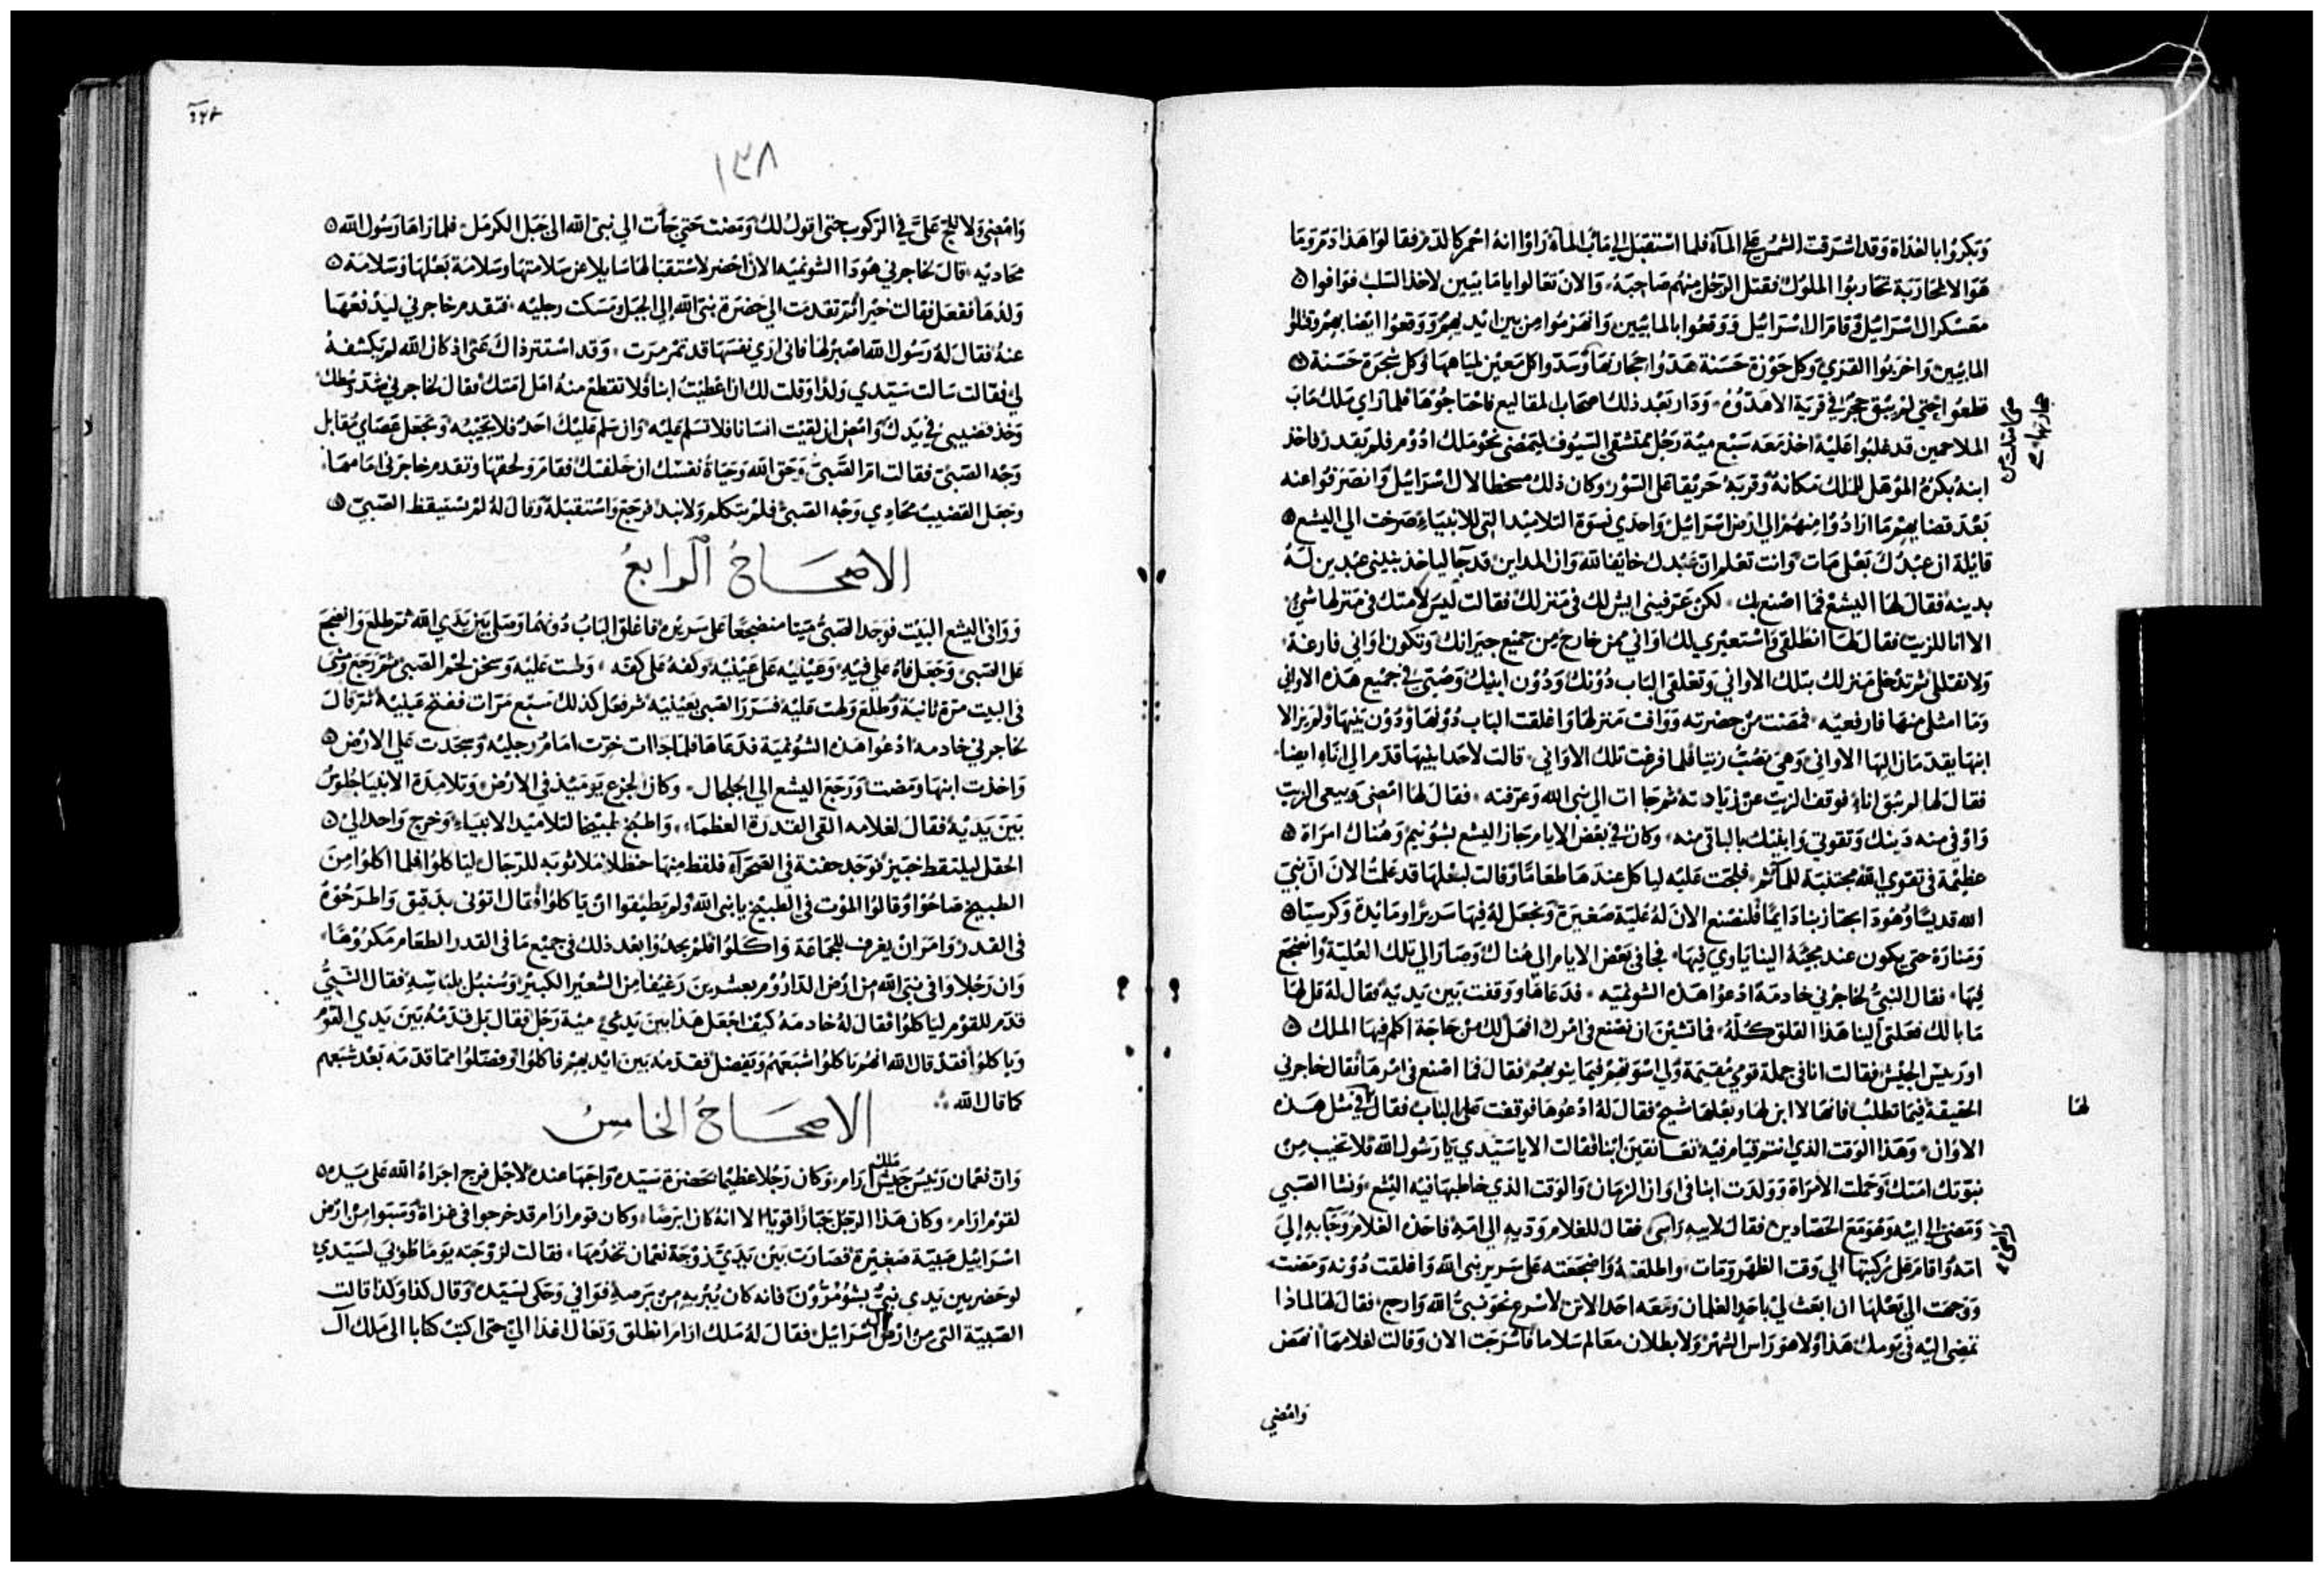 وَبَكروُا بالغدَاة وَقد اشرَقت الشمسُ عَلى المآء فلما اسْتقبَل الى مَاب الماءَ رَاوْا انهُ احْمرَ كالدّم فقالوا هَذا دَمْ وَمَا
هوَ الا لمحَارَبَة تحَارَبوا الملوك فقتل الرَجُل منهم صَاحِبَهُ وَالان تعَالوا يا مَابيين لاخذ السَلب فوَافوا
معَسْكر ال اسْرَائيل وَقامَ ال اسْرَائيل وَوَقعُوا بالمابيين وَانهزمُوا من بين ايديهم وَوَقعُوا ايضا بهم وَقتلوُا
المابيين وَاخرَبوا القرَي وَكل حَوْزة حَسَنة هَدوُا حجَارتهَا وَسَدوا كل مَعين لميَاههَا وَكل شجَرَة حَسَنة
قطعُوا حتى لم يبق حجر في قرية الا هدوُه وَدَار بعْد ذلك اصحاب المقاليع فاحتاجُوهَا فلما رَاي مَلك مَابَ
الملاحمين قد غلبُوا عَليْه اخذ مَعَه سَبْع ميْة رَجُل ممتشقى السيُوف ليَمْضى نحو مَلك ادُوم فلم يَقدر فاخذ
ابنهُ بكرهُ المؤهل للملك مَكانهُ وَقربَهُ حَريقا عَلى السوْر وَكان ذلك سخطا لال اسْرَائيل وَانصَرَفوُا عنه
بَعْدَ قضايهم مَا ارَادُوا منهُم الى ارض اسْرَائيل وَاحدَي نسوَة التلاميْد التى للانبيَاء صَرَخت الي اليشع
قايلة ان عبْدك بَعْلى مَات وَانت تعْلم ان عَبْدك خايفا لله وَان المداين قد جآ لياخذ بنينى عبْدين لهُ
بدينه فقال لهَا اليشعْ فما اصْنع بك لكن عَرفينى ايش لك في مَنزلك فقالت ليسَ لامتك في مَنزلها شئ
الا انا للزيت فقال لهَا انطلقى وَاسْتعيْري لك اوَانى من خارج من جَميْع جيرَانك وَتكون اوَاني فارغة
وَلا تقللى ثم تدْخلى مَنزلك بتلك الاواني وَتغلقى البَاب دُوْنك وَدُوْن ابنيك وَصُبى في جَميْع هَذه الاوانى
وَمَا امتلى منها فارفعيْه فمضت من حضرته وَوَافت مَنزلهَا وَاغلقت البَاب دُوْنهَا وَدُوْن بنيهَا وَلم يزالا
ابنهَا يقدمَان اليهَا الاوانى وَهىَ تصُبُ زيتا فلما فرغت تلك الاوَانى قالت لاحَد ابنيهَا قدم الي انآء ايضا
فقال لها لم يبق اناء فوقف الزيت عَنْ زيادته ثم جَاات الي نبى الله وَعرفته فقال لهَا امضى وَبيعى الزيت
وَاوْفى منه دَينك وَتقوتى وَابنيك بالباقى منه وَكان في بعْض الايام جَاز اليشع بشوُنيم وَهُناك امرَاة
عظيْمة في تقوي الله مجتنبَة للمآثم فلجت عَليْه لياكل عندهَا طعَامًا وَقالت لبعْلهَا قد علمتُ الان ان نبىَ
الله قديسًا وَهُوَ ذا يجتاز بنا دَايمًا فلنصْنع الانَ لهُ عُليّة صَغيرَة وَنجعَل لهُ فيهَا سَريرًا وَمايْدة وَكرسيّا
وَمَنارَة حَتى يكون عند مجيْهُ الينا ياوي فيهَا فجا في بَعْض الايام الي هُناك وَصَارَ الي تلك العُليّة وَاضجعَ
فيهَا فقال النبىُ لخاجزي خادمهُ ادعوا هَذه الشونميّه فدَعَاهَا وَوَقفت بَين يَديه فقال لهُ قل لهَا
مَا بالك فعَلتى الينا هَذا القلق كُله فما تشيئنَ ان نصْنع في امْرك افهل لك من حَاجَة اكلم فيهَا الملك
اوْ رَئيس الجيْش فقالت انا في جملة قومي مُقيمَة وَلي اسْوَة بهم فيمَا ينوبهم فقال فمَا اصْنع في امْرهَا فقال خاجزي
الحقيقة فيمَا تطلبُ فانهَا لا ابن لهَا وَبعْلهَا شيخ فقال لهُ ادعُوهَا فوَقفت عَلى البَاب فقال لها في مثل هَذه
الاوَان وَهَذا الوَقت الذي انتم قيام فيْه تعَانقين ابنا فقالت الا ياسَيّدي يَا رَسُول الله فلا تخيب مِن
نبوّتك امَتك وَحَملت الامْرَاة وَوَلدَت ابنا في اوَان الزمَان وَالوَقت الذي خاطبهَا فيْه اليشع وَنشا الصَبى
وَمَضى الى ابيْه وَهُوَ مَعَ الحَصّادين فقال لابيه رَاسى فقال للغلام وَديه الى امّهِ فاخذه الغلامُ وَجَآ به إلي
امّهُ وَاقامَ عَلى رُكبتهَا الي وَقت الظهر وَمَات وَاطلعَته وَاضجَعَته عَلى سَرير نبى الله وَاغلقت دُوْنه وَمَضت
وَوَجهَت الي بَعْلهَا ان ابعَث لى باحَد الغلمان وَمَعَه احَد الاتن لاسْرع نحو نبىَّ الله وَارجع فقال لهَا لماذا
تمضِى اليْه في يَومك هَذا وَلا هو رَاس الشهْر وَلا بطلان مَعَالم سَلاما فاسْرَجَت الان وَقالت لغلامهَا انهَض
لها
وَامْضي
١٣٨
وَامْضِى وَلا تلجّ عَلىَّ في الرّكوب حتى اقول لك وَمَضت حَتى جَأت الي نبىّ الله الى جَبَل الكرمَل فلما رَاهَا رَسُول الله
محَاديْه قال لخاجزي هُوَ ذا الشونميّه الان احْضر لاسْتقبَالهَا سَايلا عن سَلامتهَا وَسَلامَة بَعْلهَا وَسَلامَة
وَلدُهَا ففعَل فقالت خيْر ثمّ تقدَمَت الي حَضرَة نبىَ الله إلي الجَبَل وَمَسَكت رجليْه فتقدم خاجزي ليَدْفعْهَا
عنهُ فقال لهُ رَسُول الله اصْبر لهَا فانى ارَي نفسَهَا قد تمرمرَت وَقد اسْتتر ذاك عَنى اذ كان الله لم يَكشفهُ
لي فقالت سَالت سَيّدي وَلدًا وَقلت لك اذا اعْطيْتُ ابنا فلا تقطع منهُ امَل امَتك فقال لخاجزي شدّ وَسْطك
وَخذ قضيبى في يَدك وَامْض ان لقيْت انسَانا فلا تسَلم عَليْه وَان سَلم عَليْك احَد فلا تجيْبه وَتجعَل عَصَاي مُقابل
وَجْه الصَبىّ فقالت امّ الصَّبىّ وَحَق الله وَحَيَاة نفسك ان خَلفتك فقامَ وَلحقهَا وَتقدم خاجزي امَامهَا
وَجعَل القضيب محَادي وَجْه الصَبىّ فلم يتكلم وَلا نبد فرَجَع وَاسْتقبَلهُ وَقال لهُ لم يسْتيقظ الصَبىّ
الاصحَاحُ الرابعُ
وَوَافى اليشع البَيْت فوَجَد الصَبىّ مَيتا منضجعًا على سَريْره فاغلق البَابُ دُوْنهُمَا وَصَلى بَيْن يَدَي الله ثم طلع وَانضجعَ
عَلى الصَبى وَجَعَل فاهُ عَلي فيْهِ وَعَيْنيْه عَلى عَيْنيْه وَكفهُ عَلى كفه وَلهت عَليْه وَسَخن لحم الصَبىّ ثم رَجَع وَمَشى
في البيت مَرة ثانيَة وَطلع وَلهت عَليْه فسَرَرَ الصَبى بعَيْنيْه ثم فعَل كذلك سَبْع مَرات ففتح عَينيْهُ ثم قال
لخاجزي خادمه ادعُوا هَذه الشونميّة فدَعَاهَا فلما جَاات خرّت امَامُ رجليْه وَسَجَدت عَلى الارْض
وَاخذت ابنهَا وَمَضت وَرَجَع اليشع الي الجلجال وَكان الجوع يَوْميْذ في الارْض وَتلامِذة الانبيَا جُلوسُ
بَيْن يَديْهُ فقال لغلامه القى القدرَة العظمَاء وَاطبُخ طبيْخا لتلاميْد الانبيَاء وَخرج وَاحدا الي
الحقل ليلتقط خبيز فوَجَد جفنة في الصَحْرَآء فلقط منهَا حنظلا مَلا ثوبَه للرّجَال ليَاكلوا فلما اكلوُا مِنَ
الطبيخ صَاحُوا وَقالوُا الموْت في الطبيْخ يا نبى الله وَلم يَطيْقوا ان يَا كلوُا فقال اتوُنى بدَقيق وَاطرَحُوهُ
فى القدرْ وَامَرَ انْ يغرف للجمَاعَة وَاكَلوُا فلم يجدُوا بعْد ذلك في جَميْع مَا في القدر الطعَام مَكرُوْهًا
وَان رَجُلا وَافى نبىَ الله من ارْض الدارُوْم بعشرين رَغيْفا مِن الشعيْر الكبيْر وَسُنبُل بلبَاسِّه فقال النّبىُّ
قدّم للقوْم ليَا كلوُا فقال لهُ خادمَهُ كيْف اجْعَل هَذا بَين يَدي ميْة رَجُل فقال بَل قدّمْهُ بَينَ يَدَي القوْم
وَياكلوُا فقد قال الله انهُم يَاكلوُا شبَعَهم وَيَفضل فقدّمهُ بَين ايْديهم فاكلوُا وَفضلوُا ممَا قدّمَه بَعْد شبَعهم
كما قال الله
الاصحَاحُ الخامسُ
وَان نعْمَان رَئيْس جَيش مَلك ارَام وَكان رَجُلا عظيْما بحَضرَة سَيّده وَاجَهَا عنده لاجْل فرج اجرَاهُ الله عَلى يَديْه
لقوْم ارَام وَكان هَذا الرجُل جَبّارًا قويّا الا انهُ كان ابرَصًا وَكان قوم ارَام قد خرجوا في غزاة وَسَبَوا من ارْض
اسْرَائيْل صَبيّة صَغيْرَة فصَارَت بَين يَديَّ زوْجَة نعْمان تخدُمهَا فقالت لزوْجَته يَومًا طوبَى لسَيّدي
لو حَضر بين يَدي نبىٌ بشومْرُوْن فانه كان يُبْريه من بَرَصه فوَافى وَحَكى لسَيّده وَقال كذا وَكذا قالت
الصَبيّة التى من ارْض ال اسْرَائيل فقال لهُ مَلك ارَام انطلق وَتعَال غدَا اليّ حَتى اكتبُ كتابا الى مَلك آل